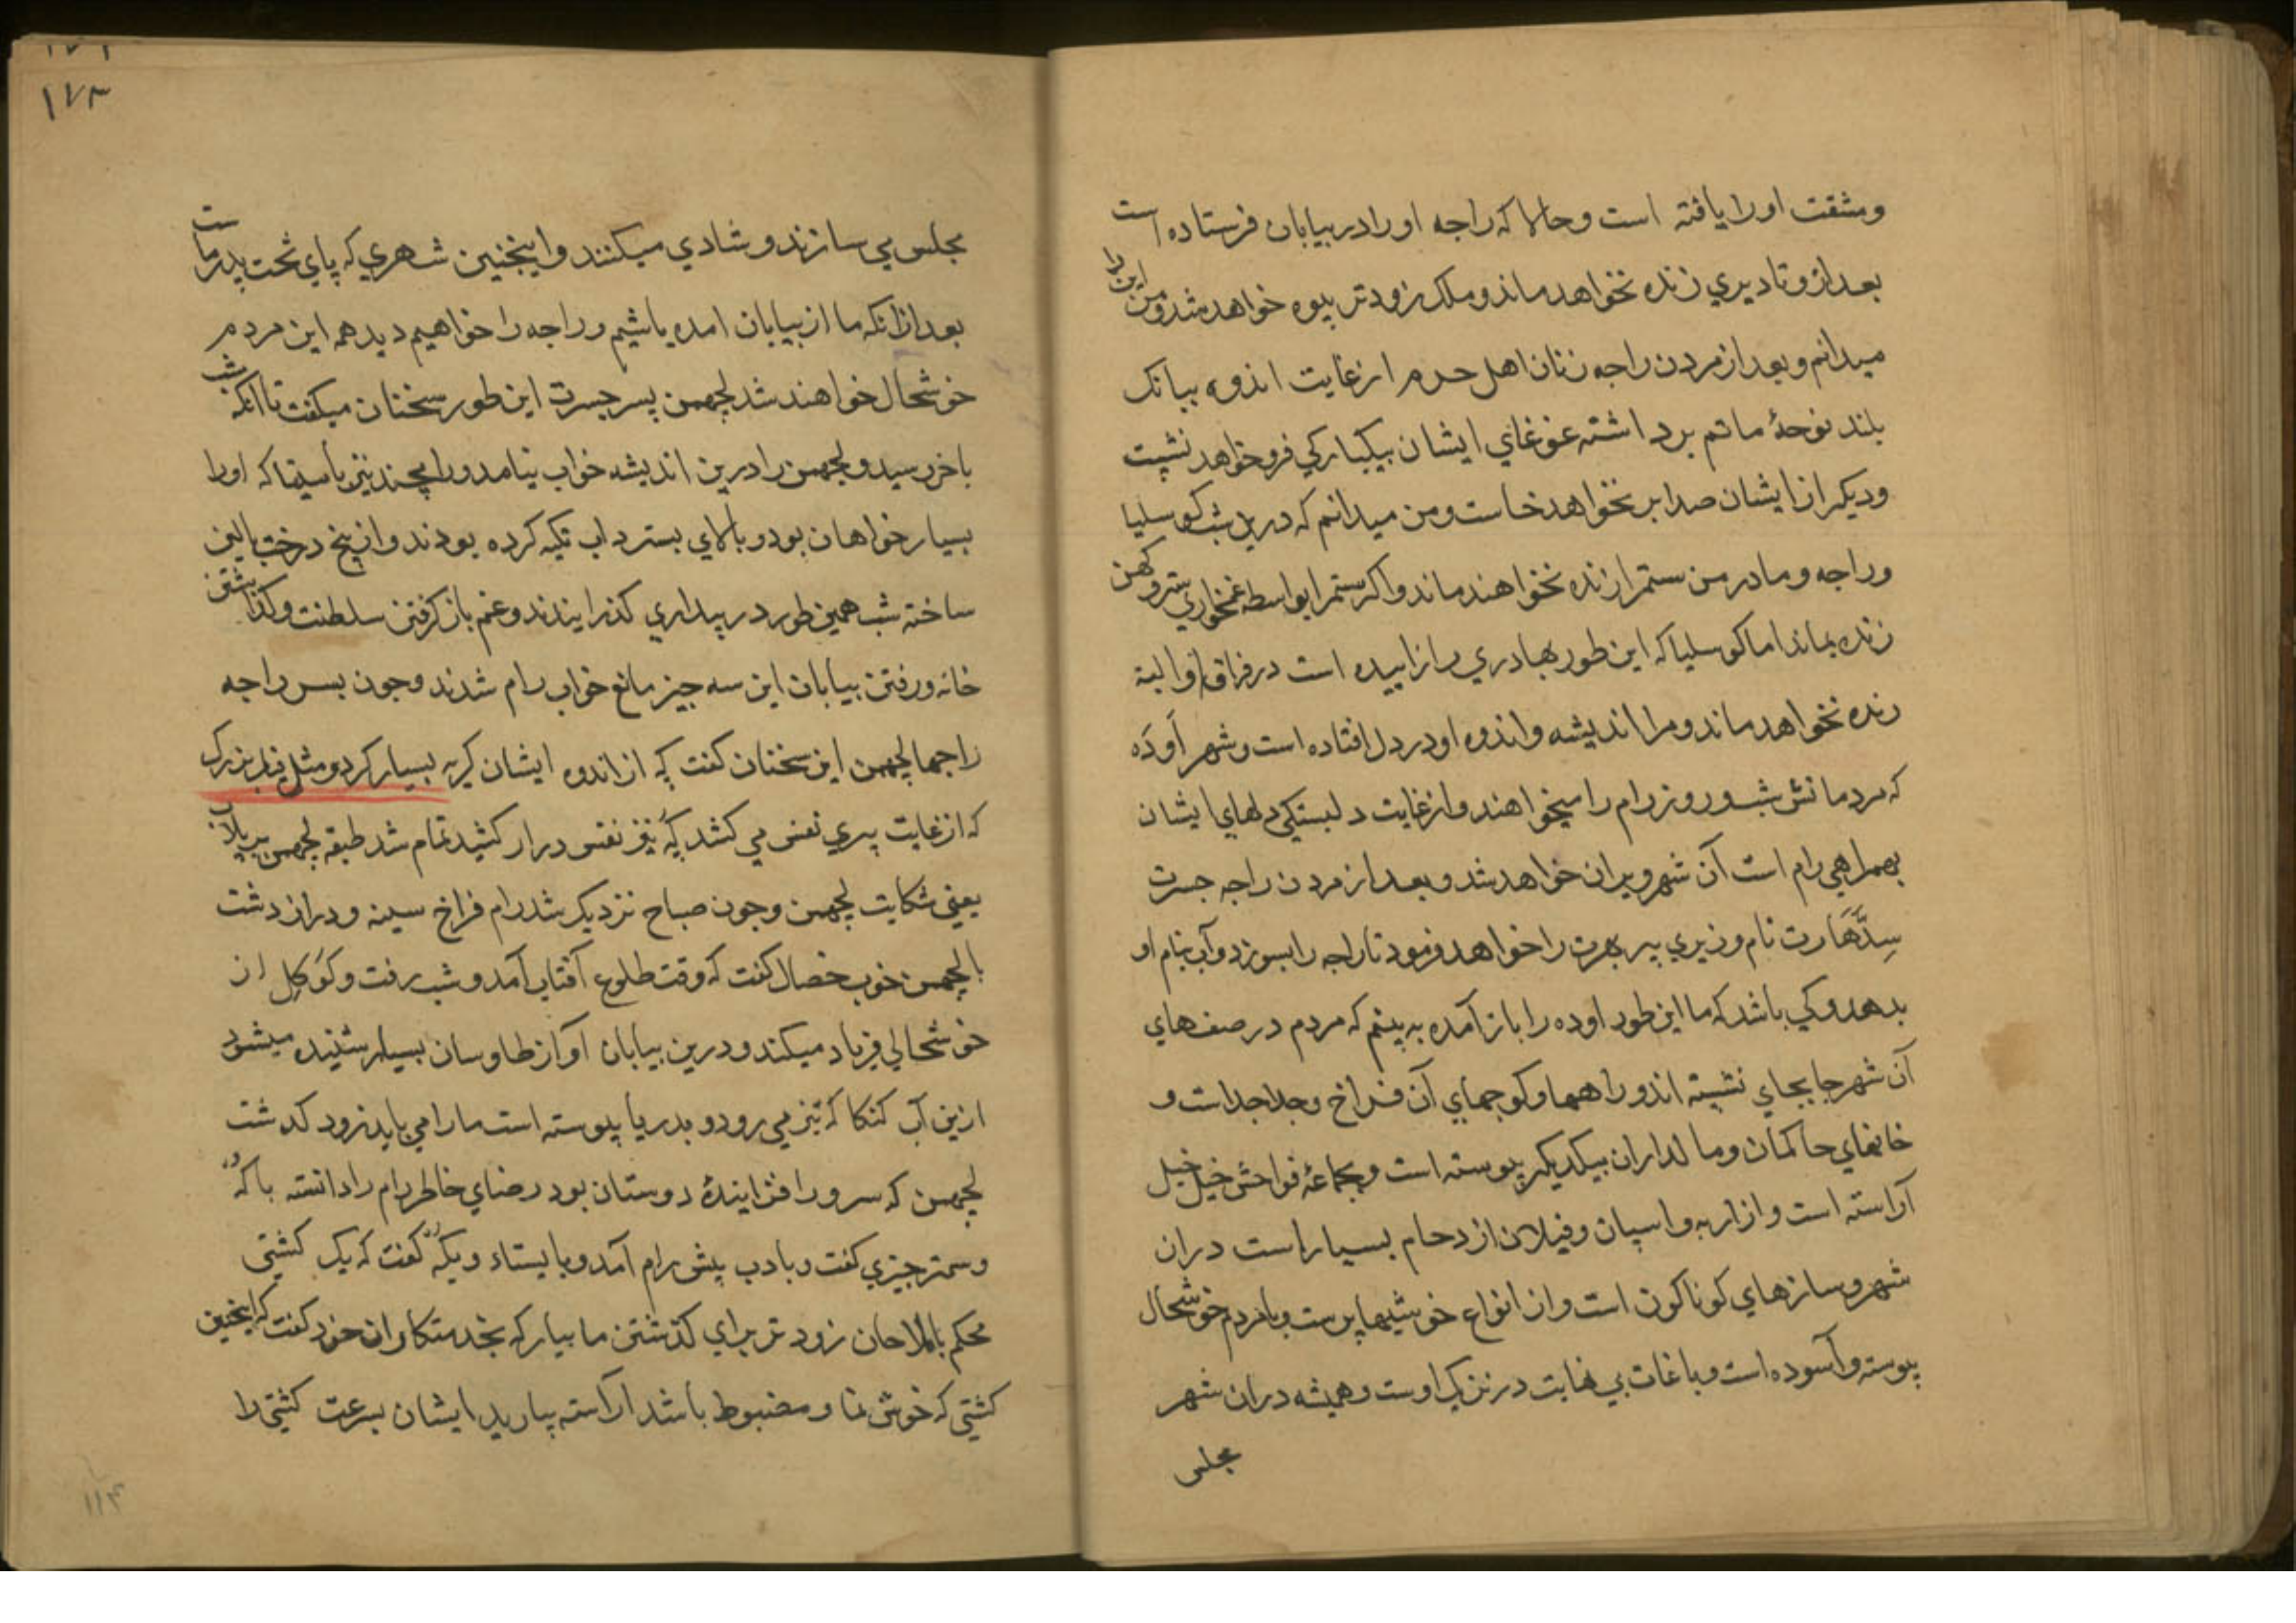 ومشقت اورا یافته است وحالا که راجه اورا در بیابان فرستاده است
بعد ازو تا دیری زنده نخواهد ماند و ملک زود تر بیوه خواهد شد و من این را
میدانم و بعد از مردن راجه زنان اهل حرم از غایت اندوه ببانک
بلند نوحهٔ ماتم برداشته غوغای ایشان بیکبارکی فرو خواهد نشست
و دیکر از ایشان صدا بر نخواهد خاست و من میدانم که درین شب کوسلیا
و راجه و مادر من ستمرا زنده نخواهند ماند و اکر ستمرا بواسطه غمخواری سترو کهن
زنده بماند اما کوسلیا که این طور بهادری را زاییده است در فراق او البته
زنده نخواهد ماند و مرا اندیشه و اندوه او در دل افتاده است و شهر اَودَه
که مردمانش شب و روز رام را میخواهند و از غایت دلبستکی دلهای ایشان
بهمراهی رام است آن شهر ویران خواهد شد و بعد از مردن راجه جسرت
سِدّهَارت نام وزیری پیر بهرت را خواهد فرمود تا راجه را بسوزد و آب بنام او
بدهد و کی باشد که ما این طور اوده را باز آمده به بینم که مردم در صف های
آن شهر جا بجای نشسته اند و راهها و کوچهای آن فراخ و جدا جداست و
خانهای حاکمان و مالداران بیکدیکر پیوسته است و بجماعهٔ فواحش خیل خیل
آراسته است و از ارابه و اسپان و فیلان ازدحام بسیار است دران
شهر و سازهای کوناکون است و از انواع خوشیها پرست و بامردم خوشحال
پیوسته و آسوده است و باغات بی نهایت در نزدیک اوست و همیشه دران شهر
مجلس
۱۷۳
مجلس می سازند و شادی میکنند و اینچنین شهری که پای تخت پدر ماست
بعد ازانکه ما از بیابان امده باشیم و راجه را خواهیم دید همه این مردم
خوشحال خواهند شد لچهمن پسر جسرت این طور سخنان میکفت تا انکه شب
باخر رسید و لچهمن را درین اندیشه خواب نیامد و رامچند نیز باسیتا که اورا
بسیار خواهان بود و بالای بستر داب تکیه کرده بودند و از بیخ درخت بالین
ساخته شب همین طور در بیداری کذرایندند و غم باز کرفتن سلطنت و کذاشتن
خانه و رفتن بیابان این سه چیز مانع خواب رام شدند و چون پسر راجه
راجها لچهمن این سخنان کفت کُه از اندوه ایشان کریه بسیار کرد و مثل فیل بزرک
که از غایت پیری نفس می کشد کُه نیز نفس دراز کشید تمام شد طبقه لچهمن بربلاپ
یعنی شکایت لچهمن و چون صباح نزدیک شد رام فراخ سینه و دراز دشت
بالچهمن خوب خصال کفت که وقت طلوع آفتاب آمد و شب رفت و کوکِل از
خوشحالی فریاد میکند و درین بیابان آواز طاوسان بسیار شنیده میشود
ازین آب کنکا که تیز می رود و بدریا پیوسته است ما را می باید زود کدشت
لچهمن که سرور افزایندهٔ دوستان بود رضای خاطر رام را دانسته با کُه
و سمتر چیزی کفت و بادب پیش رام آمد و بایستاد و بکُه کفت که یک کشتی
محکم باملاحان زود تر برای کذشتن ما بیار کُه بخدمتکاران خود کفت که اینچنین
کشتی که خوش نما و مضبوط باشد اراسته بیارید ایشان بسرعت کشتی را
۱۱۴